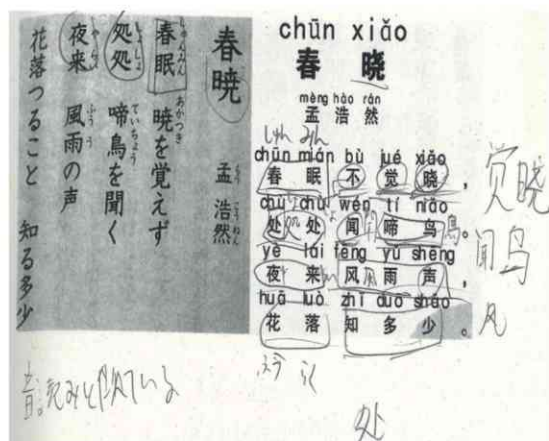 春暁
孟浩然
春眠暁を覚えず
処処啼鳥を聞く
夜来風雨の声
花落つること 知る多少
chūn xiǎo
春 晓
mèng hào rán
孟 浩 然
しゅん みん
chūn mián bù jué xiǎo
春 眠 不 觉 晓,
chù chù wén tí niǎo
处 处 闻 啼 鸟。
yè lái fēng yǔ shēng
夜 来 风 雨 声,
huā luò zhī duō shǎo
花 落 知 多 少。
觉晓
闻鸟
风
音読みと似ている
处